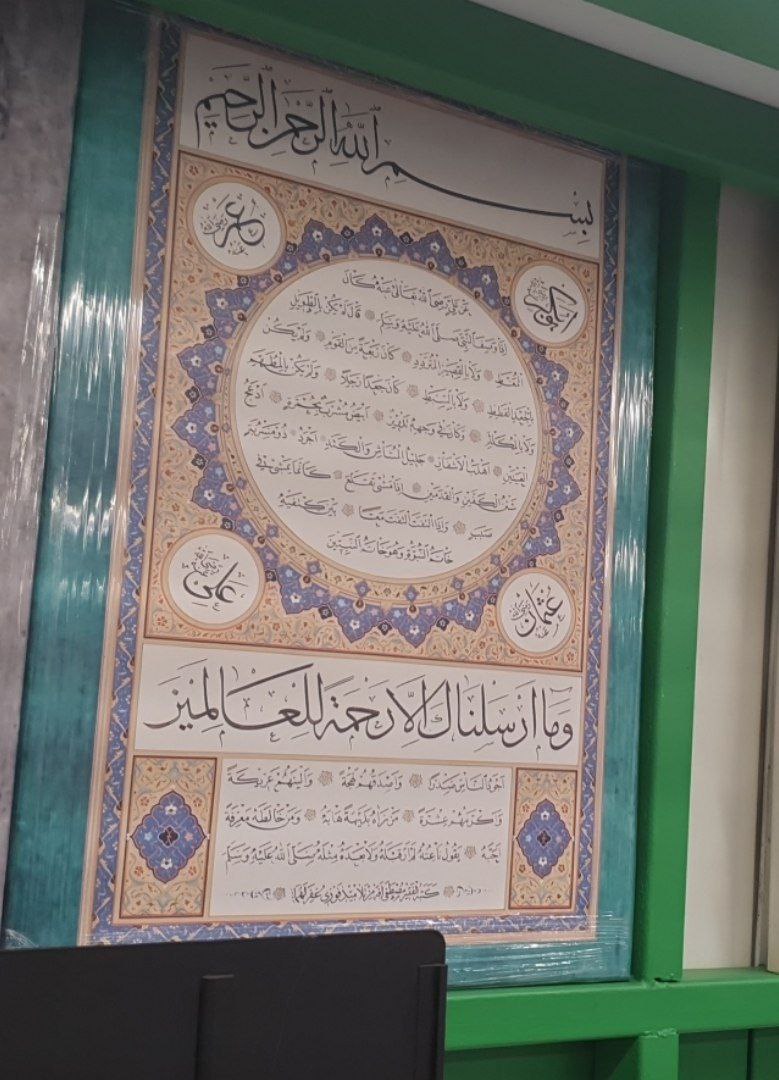 بِسْمِ اللّٰهِ الرَّحْمٰنِ الرَّحِيْمِ
ابوبكر رضي الله عنه
عمر رضي الله عنه
عَنْ عَلِيٍّ رَضِيَ اللهُ تَعَالٰى عَنْهُ كَانَ
اِذَا وَصَفَ النَّبِيَّ صَلَّى اللهُ عَلَيْهِ وَسَلَّمَ قَالَ لَمْ يَكُنْ بِالطَّوِيلِ
الْمُمَّغِطِ وَلَا بِالْقَصِيرِ الْمُتَرَدِّدِ كَانَ رَبْعَةً مِنَ الْقَوْمِ وَلَمْ يَكُنْ
بِالْجَعْدِ الْقَطَطِ وَلَا بِالسَّبِطِ كَانَ جَعْدًا رَجِلًا وَلَمْ يَكُنْ بِالْمُطَهَّمِ
وَلَا بِالْمُكَلْثَمِ وَكَانَ فِي وَجْهِهِ تَدْوِيرٌ اَبْيَضُ مُشْرَبٌ بِحُمْرَةٍ اَدْعَجُ
الْعَيْنَيْنِ اَهْدَبُ الْاَشْفَارِ جَلِيلُ الْمُشَاشِ وَالْكَتَدِ اَجْرَدُ ذُو مَسْرُبَةٍ
شَثْنُ الْكَفَّيْنِ وَالْقَدَمَيْنِ اِذَا مَشٰى تَقَلَّعَ كَاَنَّمَا يَمْشِي فِي
صَبَبٍ وَاِذَا الْتَفَتَ الْتَفَتَ مَعًا بَيْنَ كَتِفَيْهِ
خَاتَمُ النُّبُوَّةِ وَهُوَ خَاتَمُ النَّبِيِّينَ
عثمان رضي الله عنه
علي رضي الله عنه
وَمَا اَرْسَلْنَاكَ اِلَّا رَحْمَةً لِلْعَالَمِيْنَ
اَجْوَدُ النَّاسِ صَدْرًا وَاَصْدَقُهُمْ لَهْجَةً وَاَلْيَنُهُمْ عَرِيكَةً
وَاَكْرَمُهُمْ عِشْرَةً مَنْ رَاٰهُ بَدِيهَةً هَابَهُ وَمَنْ خَالَطَهُ مَعْرِفَةً
اَحَبَّهُ يَقُولُ نَاعِتُهُ لَمْ اَرَ قَبْلَهُ وَلَا بَعْدَهُ مِثْلَهُ صَلَّى اللهُ عَلَيْهِ وَسَلَّمَ
كتبه الفقير مصطفى فوزي غفر لهما